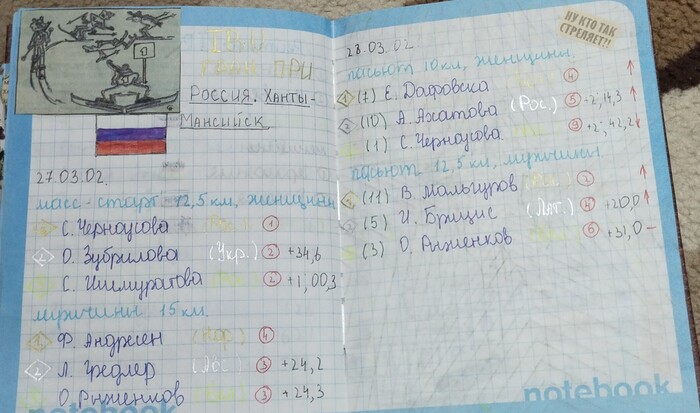 Гран
ПРИ
РОССИЯ. ХАНТЫ-
МАНСИЙСК
27.03.02.
масс-старт 12,5 км, женщины
1 С. Черноусова 1
2 О. Зубрилова (Укр.) 2 +34,6
С. Ишмуратова 2 +1,00,3
мужчины 15 км.
1 Ф. Андресен (Нор) 4
2 Л. Гредлер (Авс) 3 +24,2
О. Рыженков 3 +24,3
notebook
НУ КТО ТАК
СТРЕЛЯЕТ!!
28.03.02.
пасьют 10 км, женщины.
1 (7) Е. Дафовска 4 ↑
2 (10) А. Ахатова (Рос.) 5 +2,14,3 ↑
(1) С. Черноусова. 9 +2,42,2 ↓
пасьют 12,5 км, мужчины
(11) В. Майгуров 1 ↑
(5) И. Брицис (Лат.) 4 +20,0 ↑
(3) О. Рыженков 5 +31,0 –
notebook